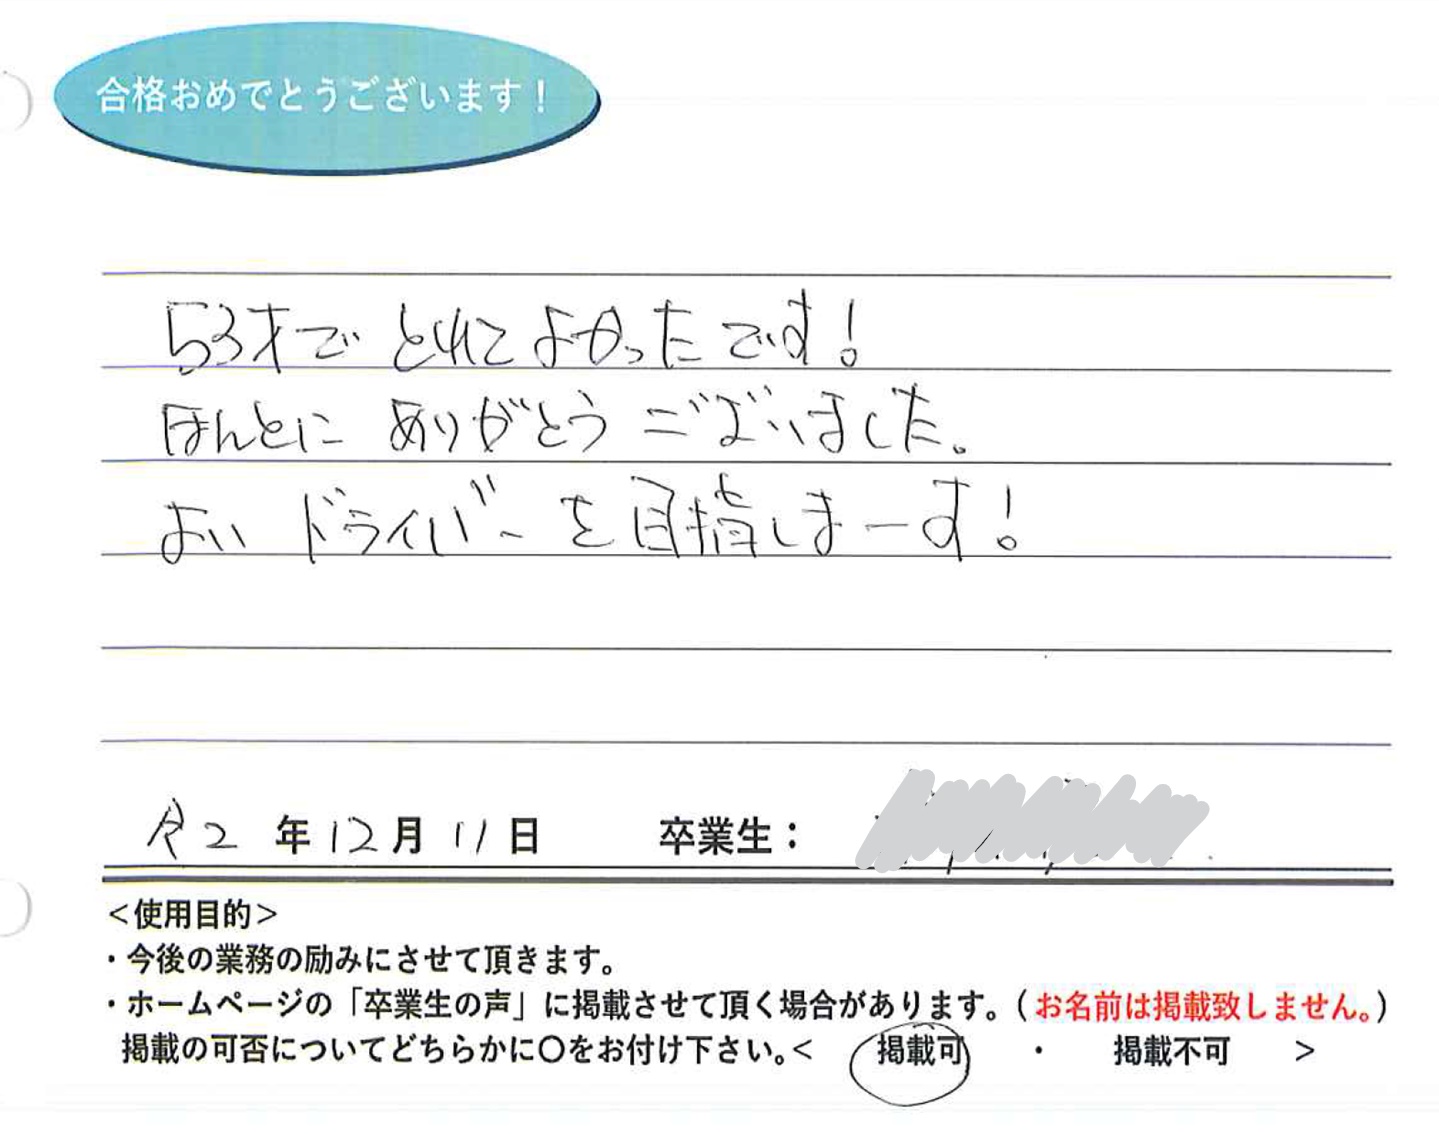 合格おめでとうございます！
53才で とれてよかったです！
ほんとに ありがとう ございました。
よい ドライバーを目指しまーす！
令2 年 12 月 11 日 卒業生：
＜使用目的＞
・今後の業務の励みにさせて頂きます。
・ホームページの「卒業生の声」に掲載させて頂く場合があります。（お名前は掲載致しません。）
掲載の可否についてどちらかに〇をお付け下さい。＜ 掲載可 ・ 掲載不可 ＞